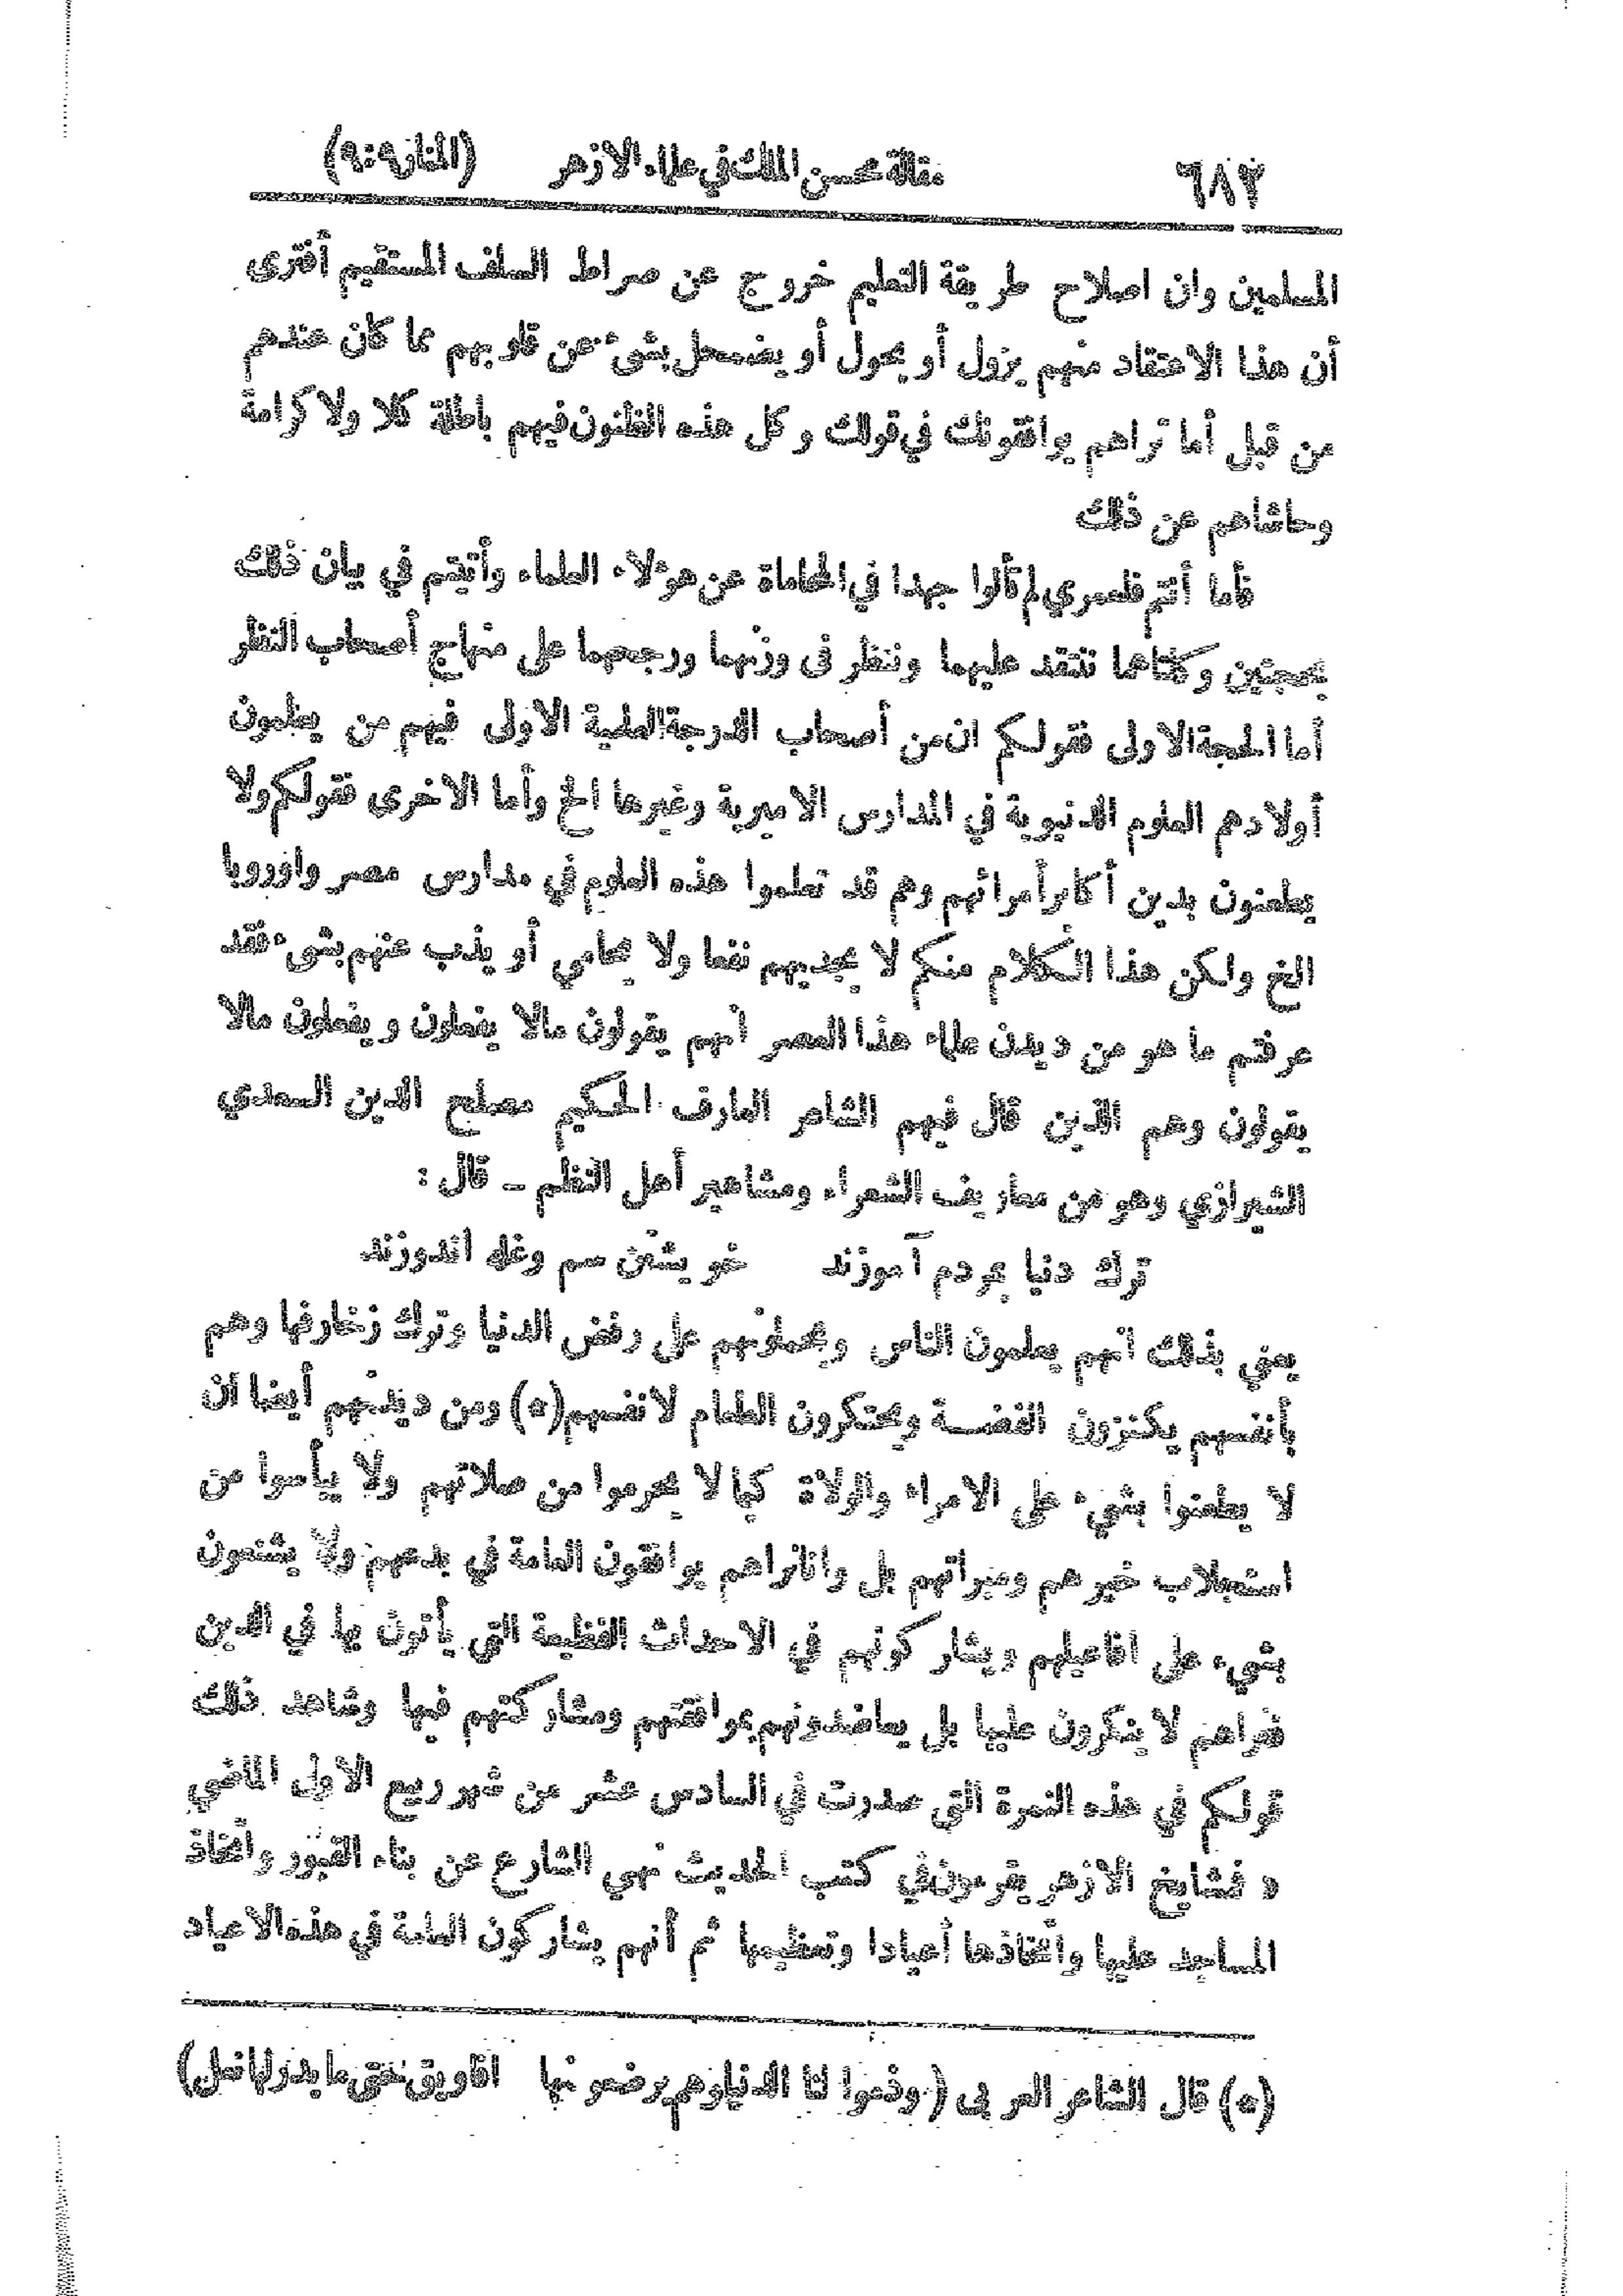 ٦٨٢ مقالة محسن الملك في علماء الازهر (المنار ٩:٩)
المسلمين وان اصلاح طريقة التعليم خروج عن صراط السلف المستقيم أفترى
أن هذا الاعتقاد منهم يزول أو يحول أو يضمحل بشئ من قلوبهم مما كان عندهم
من قبل أما تراهم يوافقونك في قولك وكل هذه الظنون فيهم باطلة كلا ولا كرامة
وحاشاهم عن ذلك
فأما أنتم فلعمري لم تألوا جهدا في المحاماة عن هؤلاء العلماء وأتيتم في بيان ذلك
بحجتين وكلتاهما ننتقد عليهما وننظر فى وزنهما ورجعهما على منهاج أصحاب النظر
أما الحجة الاولى فقولكم ان من أصحاب الدرجة العلمية الاولى فيهم من يعلمون
أولادهم العلوم الدنيوية في المدارس الاميرية وغيرها الخ وأما الاخرى فقولكم ولا
يطعنون بدين أكابر أمرائهم وهم قد تعلموا هذه العلوم في مدارس مصر واوروبا
الخ ولكن هذا الكلام منكم لا يجديهم نفعا ولا يحامي أو يذب عنهم بشئ فقد
عرفتم ما هو من ديدن علماء هذا العصر أنهم يقولون مالا يفعلون ويفعلون مالا
يقولون وهم الذين قال فيهم الشاعر العارف الحكيم مصلح الدين السعدي
الشيرازي وهو من معاريف الشعراء ومشاهير أهل النظم ــ قال :
ترك دنيا بمردم آموزند خويشتن سم وغله اندوزند
يعني بذلك انهم يعلمون الناس ويحملونهم على رفض الدنيا وترك زخارفها وهم
بأنفسهم يكنزون الفضة ويحتكرون الطعام لانفسهم (*) ومن ديدنهم أيضا أن
لا يطعنوا بشيء على الامراء والولاة كيما لا يحرموا من صلاتهم ولا ييأسوا من
استجلاب خيرهم ومبراتهم بل وانا نراهم يوافقون العامة في بدعهم ولا يشنعون
بشيء على افاعيلهم ويشاركونهم في الاحداث الفظيعة التي يأتون بها في الدين
فتراهم لا ينكرون عليها بل يعاضدونهم بموافقتهم ومشاركتهم فيها وشاهد ذلك
قولكم في هذه النمرة التي صدرت في السادس عشر من شهر ربيع الاول الماضي
د فمشايخ الازهر يقرءون في كتب الحديث نهي الشارع عن بناء القبور واتخاذ
المساجد عليها واتخاذها أعيادا وتعظيمها ثم أنهم يشاركون العامة في هذه الاعياد
(*) قال الشاعر العربى (وذموا لنا الدنيا وهم يرضعونها افاويق حتى ما يدر لها ثعل)